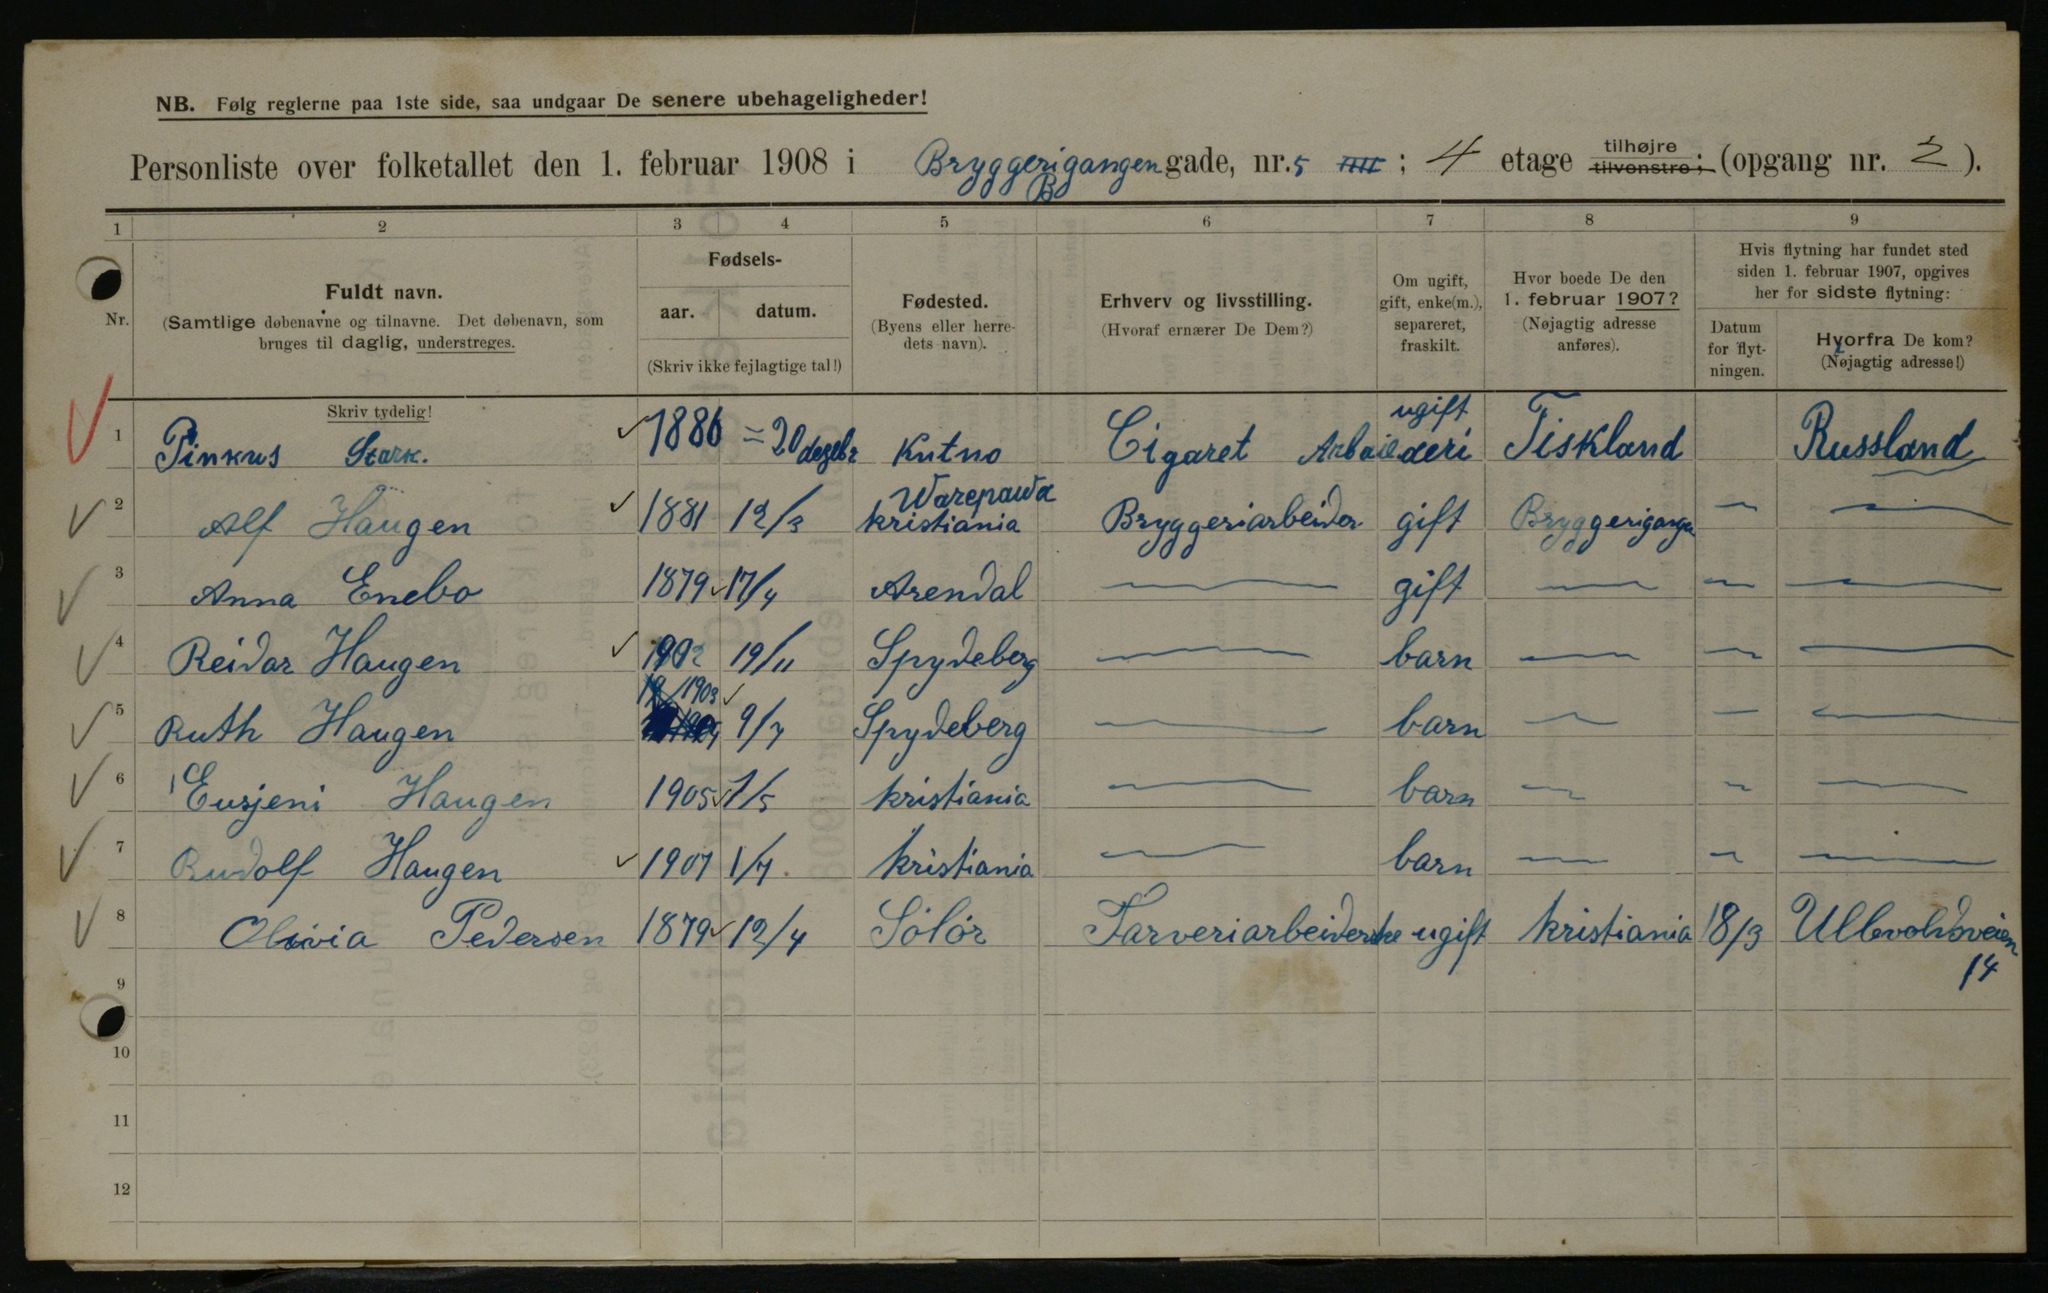 NB. Følg reglerne paa 1ste side, saa undgaar De senere ubehageligheder!
Personliste over folketallet den 1. februar 1908 i Bryggerigangen B gade, nr. 5 ; 4 etage tilhøjre tilvenstre; (opgang nr. 2).
1 2 3 4 5 6 7 8 9
Nr.
Fuldt navn.
(Samtlige døbenavne og tilnavne. Det døbenavn, som
bruges til daglig, understreges.
Skriv tydelig!
Fødsels-
aar. datum.
(Skriv ikke fejlagtige tal!)
Fødested.
(Byens eller herre-
dets navn).
Erhverv og livsstilling.
(Hvoraf ernærer De Dem?)
Om ugift,
gift, enke(m.),
separeret,
fraskilt.
Hvor boede De den
1. februar 1907?
(Nøjagtig adresse
anføres).
Hvis flytning har fundet sted
siden 1. februar 1907, opgives
her for sidste flytning:
Datum
for flyt-
ningen.
Hvorfra De kom?
(Nøjagtig adresse!)
1 Pinkus Stark. 1886 20 Kutno Cigaret ugift Tiskland Russland
Warepawa
2 Alf Haugen 1881 12/3 kristiania Bryggeriarbeider gift Bryggerigangen — —
3 Anna Enebo 1879 17/4 Arendal — gift — — —
4 Reidar Haugen 1902 19/11 Spydeberg — barn — — —
5 Ruth Haugen 1903 9/7 Spydeberg — barn — — —
6 Eusjeni Haugen 1905 1/5 kristiania — barn — — —
7 Rudolf Haugen 1907 1/7 kristiania — barn — — —
8 Olivia Pedersen 1879 12/4 Solør Farveriarbeiderske ugift kristiania 18/3 Ullevoldsveien
14
9
10
11
12